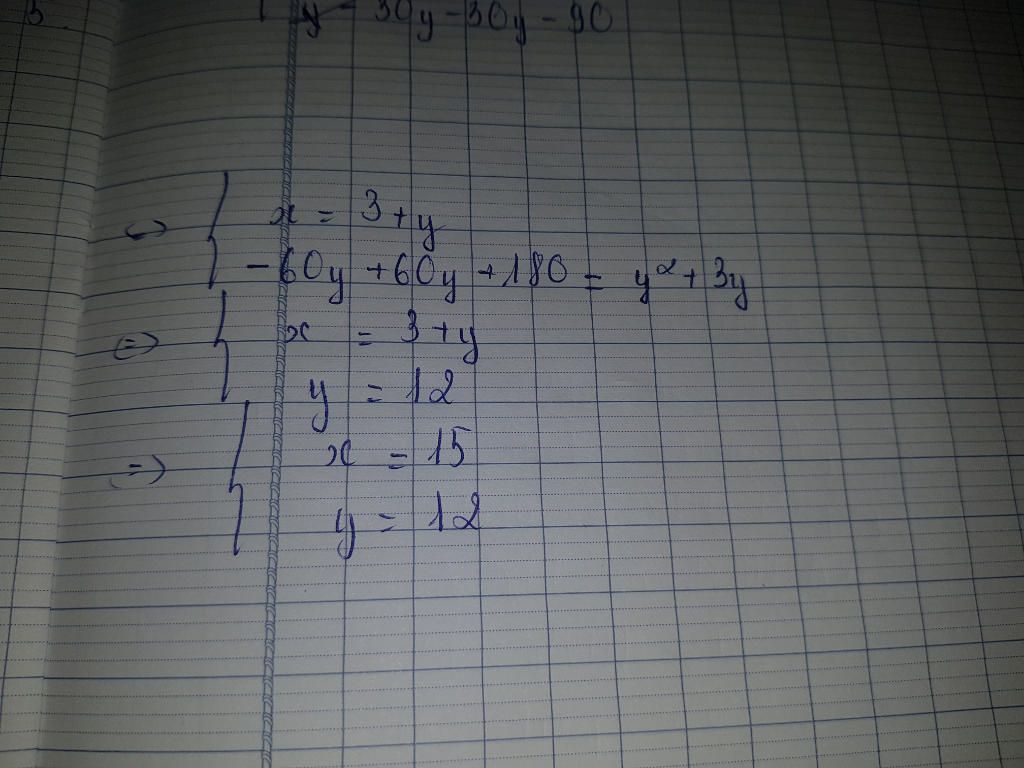 3
y - 30y - 30y - 90
⇔ { x = 3 + y
-60y + 60y + 180 = y² + 3y
⇒ { x = 3 + y
y = 12
⇒ { x = 15
y = 12